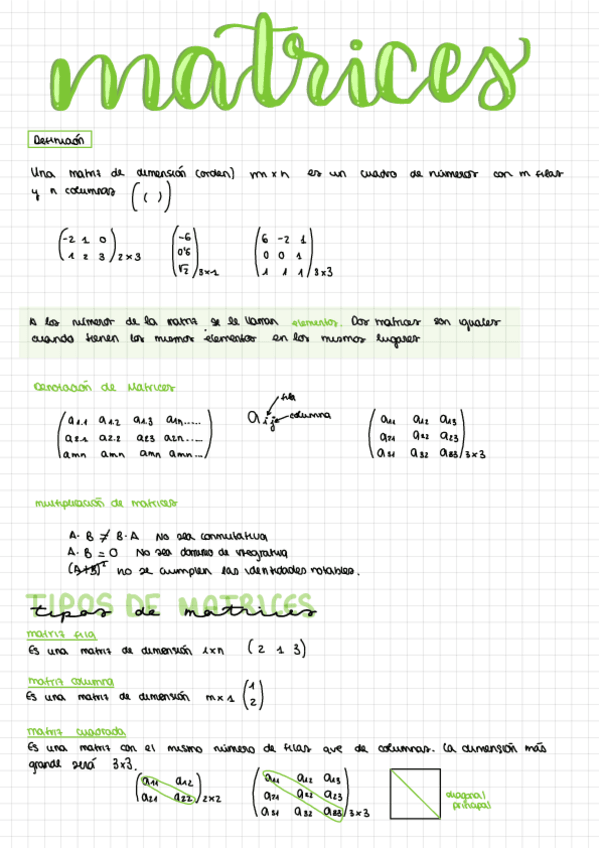 matrices
Definición
Una matriz de dimensión (orden) m x n es un cuadro de números con m filas
y n columnas ( ( ) )
(-2 1 0 / 1 2 3) 2x3 (-6 / 0'5 / √2) 3x1 (6 -2 1 / 0 0 1 / 1 1 1) 3x3
A los números de la matriz se le llaman elementos. Dos matrices son iguales
cuando tienen los mismos elementos en los mismos lugares
Denotación de Matrices
fila
a i j columna
(a1.1 a1.2 a1.3 a1n..... / a2.1 a2.2 a23 a2n..... / amn amn amn amn...) (a11 a12 a13 / a21 a22 a23 / a31 a32 a33) 3x3
multiplicación de matrices
A. B ≠ B. A No sea conmutativa
A. B = 0 No sea dominio de integrativa
(A+B)² no se cumplen las identidades notables.
TIPOS DE MATRICES
tipos de matrices
matriz fila
Es una matriz de dimensión 1xn (2 1 3)
matriz columna
Es una matriz de dimensión mx1 (1 / 2)
matriz cuadrada
Es una matriz con el mismo número de filas que de columnas. La dimensión más
grande será 3x3.
(a11 a12 / a21 a22) 2x2 (a11 a12 a13 / a21 a22 a23 / a31 a32 a33) 3x3
diagonal
principal